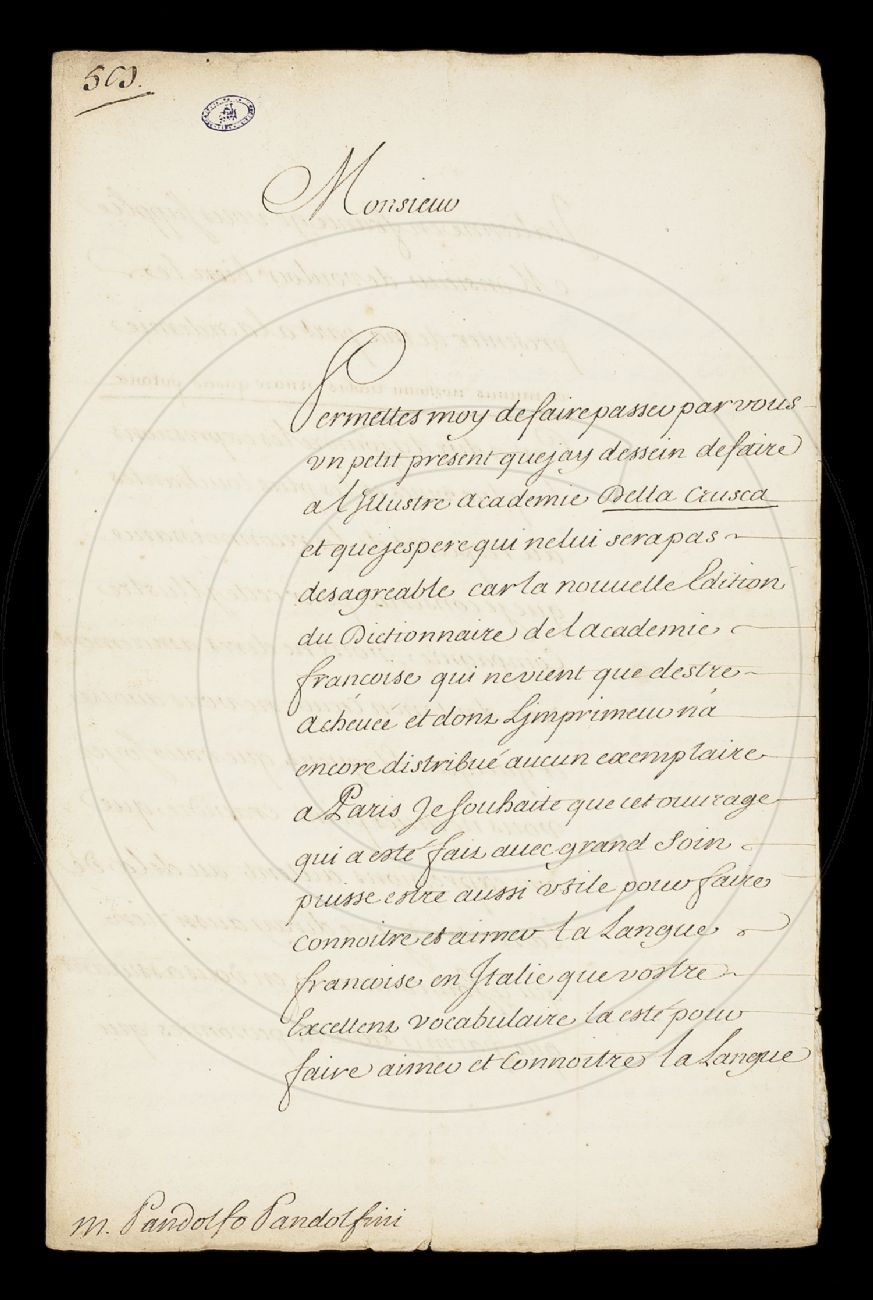 503.
Monsieur
Permettes moy de faire passer par vous
un petit présent que jay dessein de faire
a lIllustre academie Della Crusca
et que jespere qui ne lui sera pas
desagreable car la nouvelle Edition
du Dictionnaire de lacademie
francoise qui ne vient que destre
achevée et dont Limprimeur n'a
encore distribué aucun exemplaire
a Paris Je souhaite que cet ouvrage
qui a esté fait avec grand soin
puisse estre aussi utile pour faire
connoitre et aimer la Langue
francoise en Italie que vostre
Excellent vocabulaire la esté pour
faire aimer et connoitre la Langue
m. Pandolfo Pandolfini